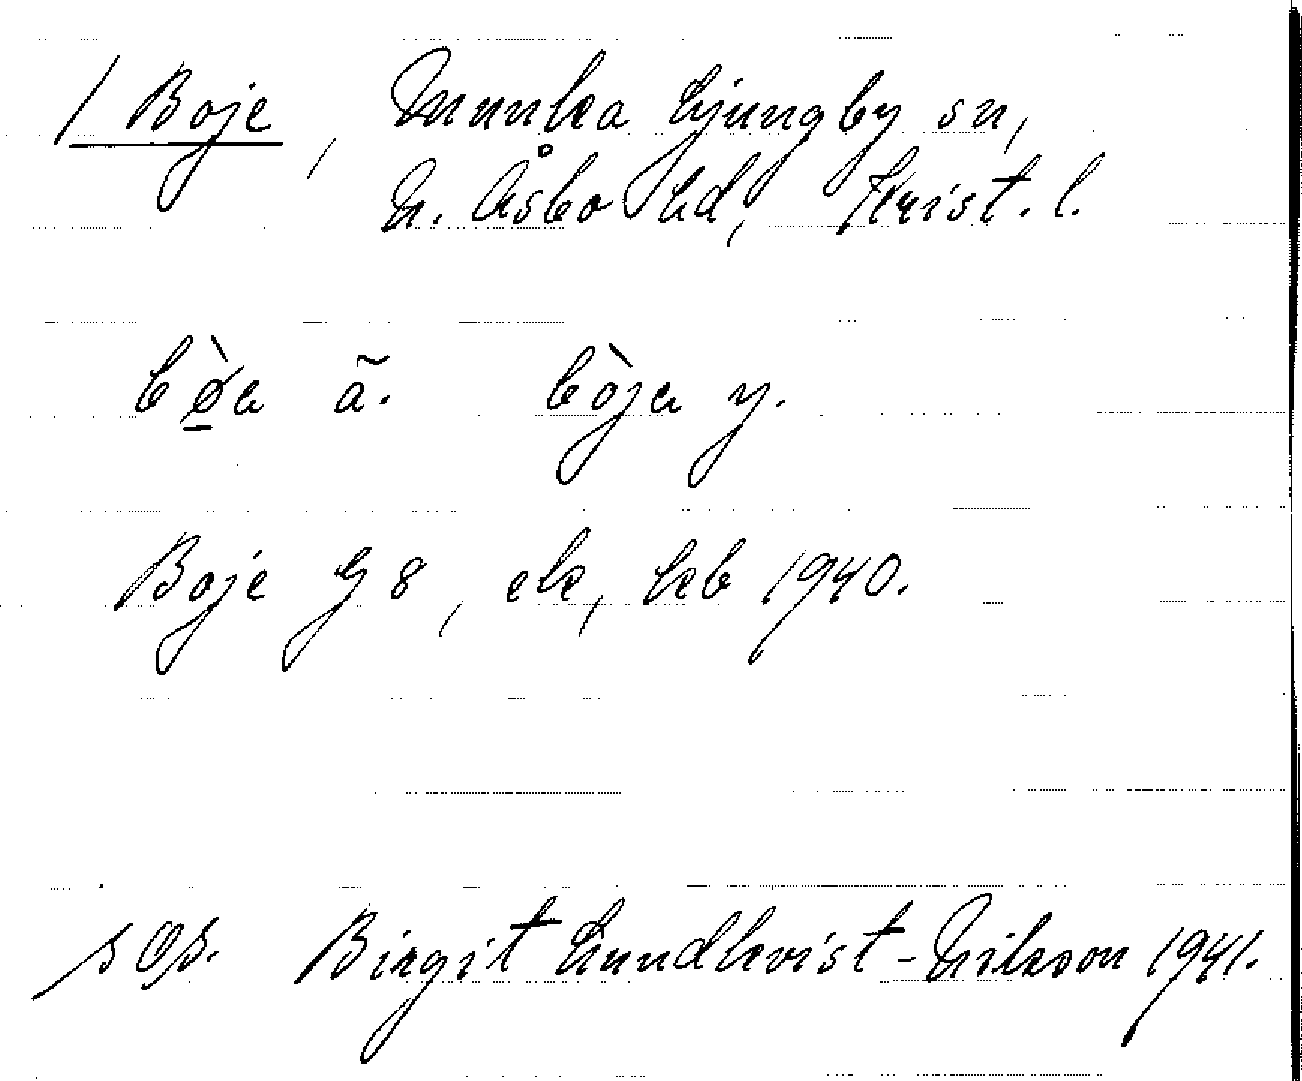 / Boje, Munka Ljungby sn,
N. Åsbo hd, Krist. l.
bø̀a ã. bòja y.
Boje G 8, ek, kb 1940.
Birgit Lundkvist-Nilsson 1941.